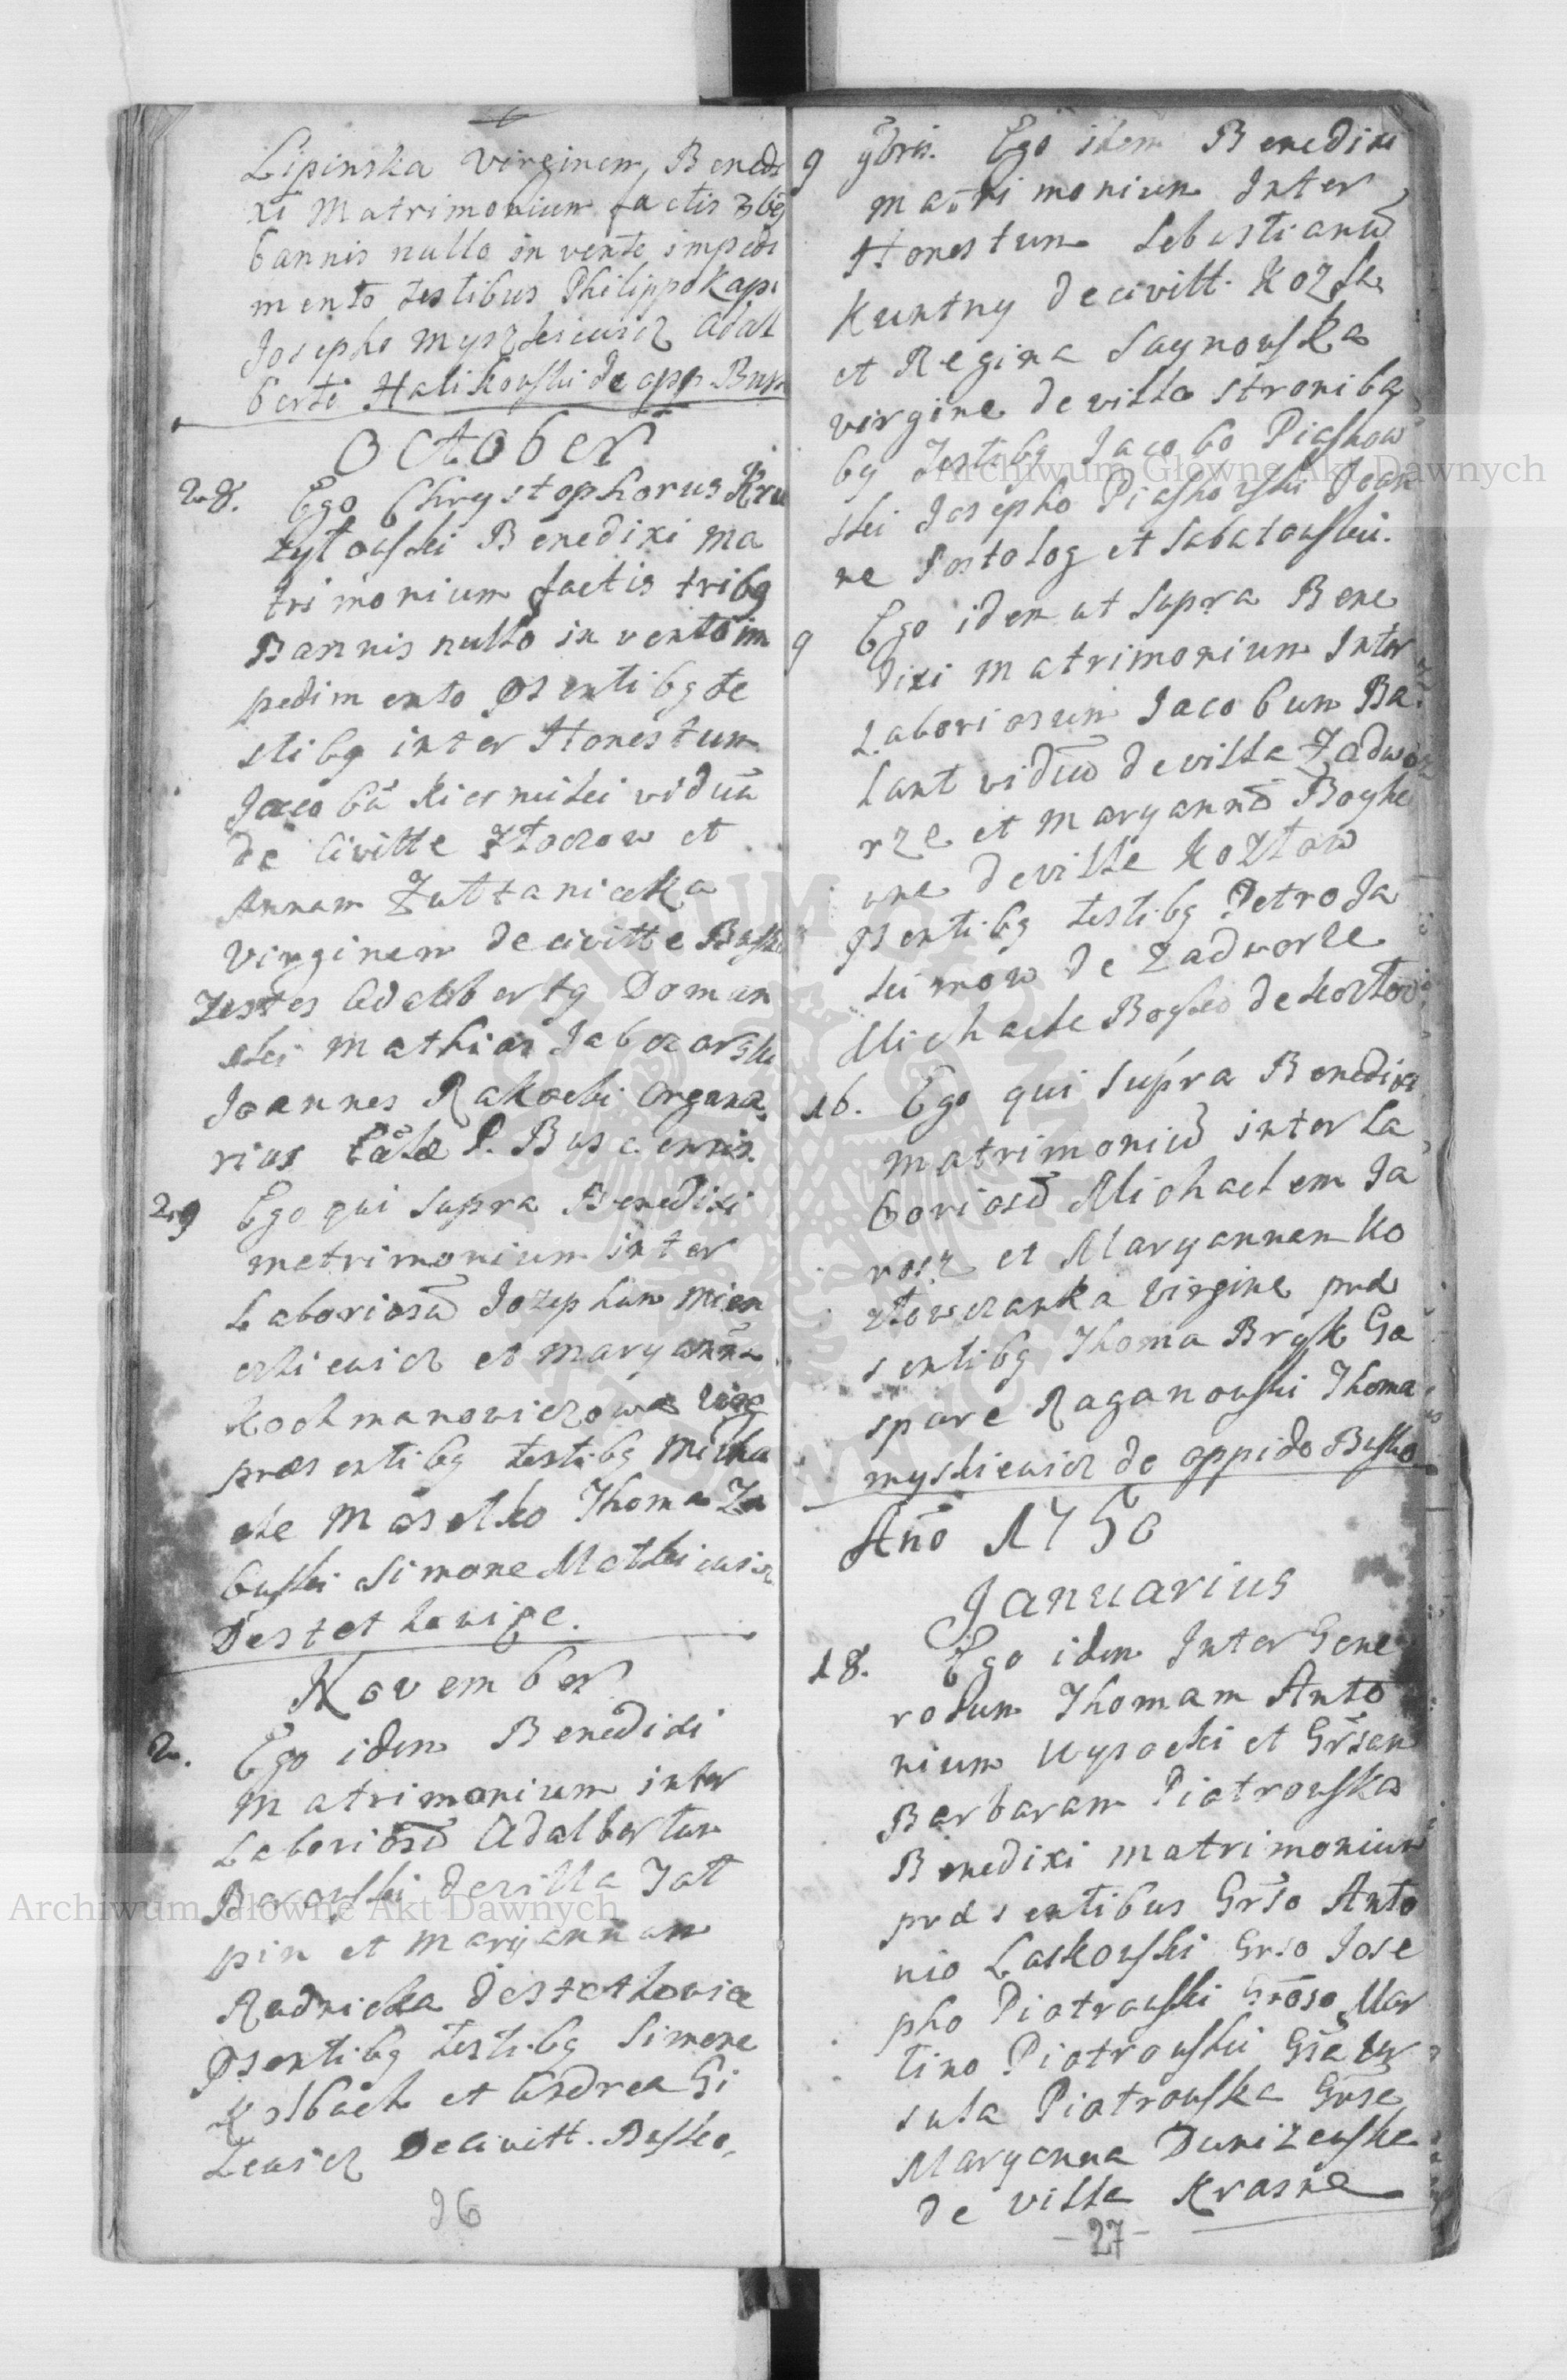 Lipinska Virginem Benedi
xi Matrimonium factis 3bg
bannis nullo in vento impedi
mento testibus Philippo Kapi
Josepho Myszkiewicz Adal
berto Halikowski de opp Busk
October
28. Ego Chrystophorus Kru
zytowski Benedixi ma
trimonium factis tribg
Bannis nullo in vento im
pedimento psentibg te
stibg inter Honestum
Jacobū Kiernicki viduū
de Civitte Złoczow et
Annam Zułtanicka
Virginem de civitte Busko
Testes Adalbertg Doman
ski Mathias Jaworski
Joannes Rakocki Organa
rius Eccle P. Buscensis.
29 Ego qui supra Benedixi
metrimonium inter
Laboriosū Jozephum Mien
et Maryannā
Kochmanowiczowa Virge
præsentibg testibg Micha
ele Thoma Za
buski Simone Matkiewicz
De stet kowice.
November
2. Ego idem Benedixi
Matrimonium inter
Laboriosū Adalbertum
Borowski de villa Jał
pin et Maryannam
Rudnicka de stetkowice
Psentibg testibg Simone
et Andrea Gi
lewicz De civitt. Busko.
26
9 9bris. Ego idem Benedixi
matrimonium Inter
Honestum Sebastianū
Kuntny de civitt.
et Regina Saynowska
virgine de villa Stroniba
bg Testibg Jacobo Piaskow
ski Josepho Piaskowski Joan
ne Postolog et Sabatowski.
9 Ego idem ut supra Bene
dixi Matrimonium Inter
Laboriosum Jacobum Ba
lant viduū de villa Zadwo
rze et Maryannā Boyko
wne de ville Kozłow
psentibg testibg Petro Ja
kimow de Zadworze
Michaele Boyko de Kozłow
16. Ego qui supra Benedixi
matrimoniū inter La
boriosū Michaelem Ja
rosz et Maryannam Ko
złowczanka Virgine præ
sentibg Thoma Bryk Ga
spare Raganowski Thoma
Myskiewicz de oppido Busko
Año 1750
Januarius
18. Ego idem Inter Gene
rosum Thomam Anto
nium Wysocki et Grsam
Barbaram Piotrowska
Benedixi matrimonium
præsentibus Grso Anto
nio Laskowski Grso Jose
pho Piotrowski Groso Mar
tino Piotrowski Gsa Ur
sula Piotrowska Grse
Maryanna Dunizewska
de villa Krasne
-27-
Archiwum Główne Akt Dawnych
Archiwum Główne Akt Dawnych